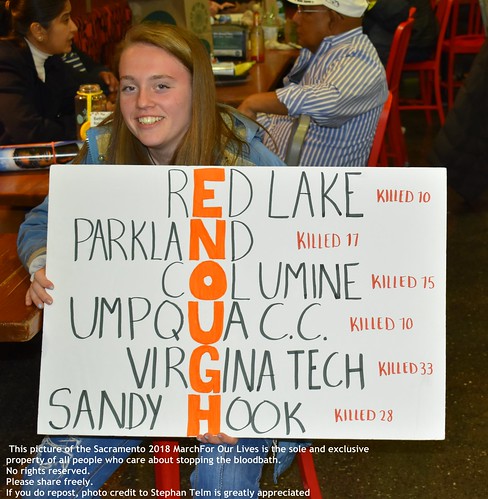 RED LAKE KILLED 10
PARKLAND KILLED 17
COLUMINE KILLED 15
UMPQUA C.C. KILLED 10
VIRGINA TECH KILLED 33
SANDY HOOK KILLED 28
This picture of the Sacramento 2018 MarchFor Our Lives is the sole and exclusive
property of all people who care about stopping the bloodbath.
No rights reserved.
Please share freely.
If you do repost, photo credit to Stephan Telm is greatly appreciated